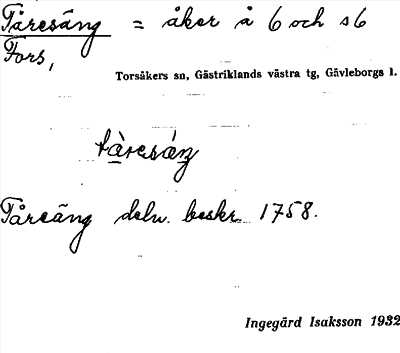 Tåresäng = åker å 6 och s6
Fors,
Torsåkers sn, Gästriklands västra tg, Gävleborgs l.
tàresáŋ
Tåreäng deln. beskr. 1758.
Ingegärd Isaksson 1932